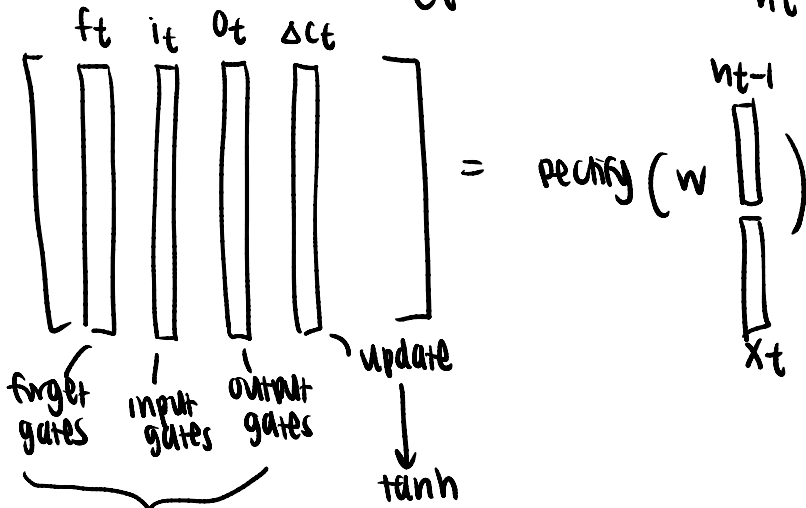 ft it ot Δct
ht-1
= Rectify ( W )
xt
update
forget gates
input gates
output gates
tanh